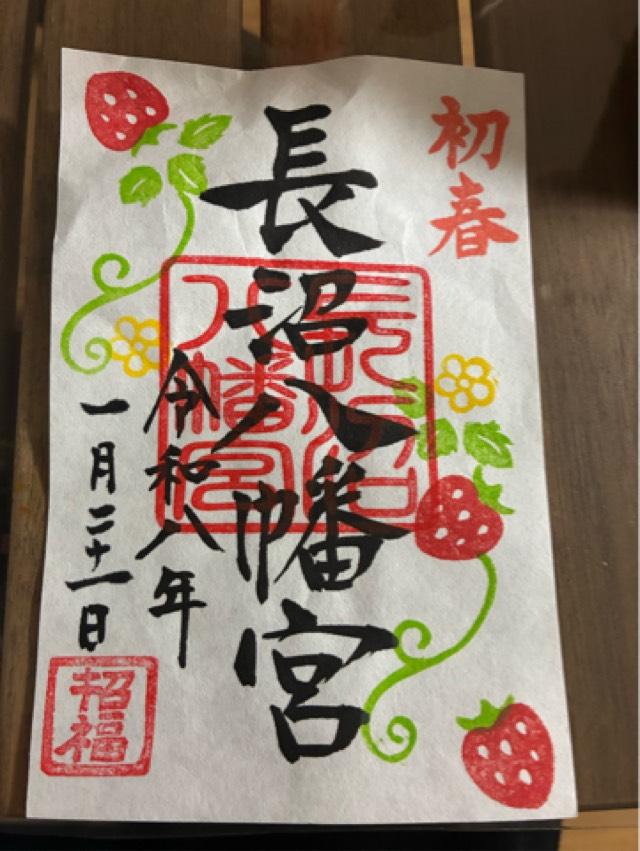 初春
長沼八幡宮
長沼
八幡宮
令和八年
一月二十一日
招福